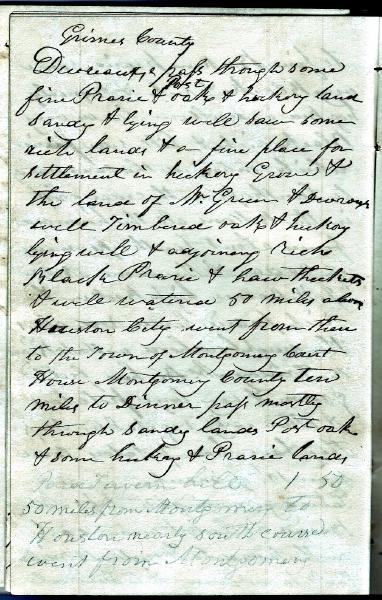 Grimes County
Devreaux pass through some
fine Prarie & Post oak & hickory land
Sandy & lying well saw some
rich lands & a fine place for
settlement in hickory Grove &
the land of Mr Green & Devroux
well Timbered oak & hickory
lying well & adjoining rich
Black Prarie & haw thickets
& well watered 50 miles above
Houston City went from there
to the Town of Montgomery Court
House Montgomery County ten
miles to Dinner pass mostly
through Sandy lands Post oak
& some hickory & Prarie lands
Tavern 1 50
50 miles from Montgomery to
Houston nearly south course
went from Montgomery